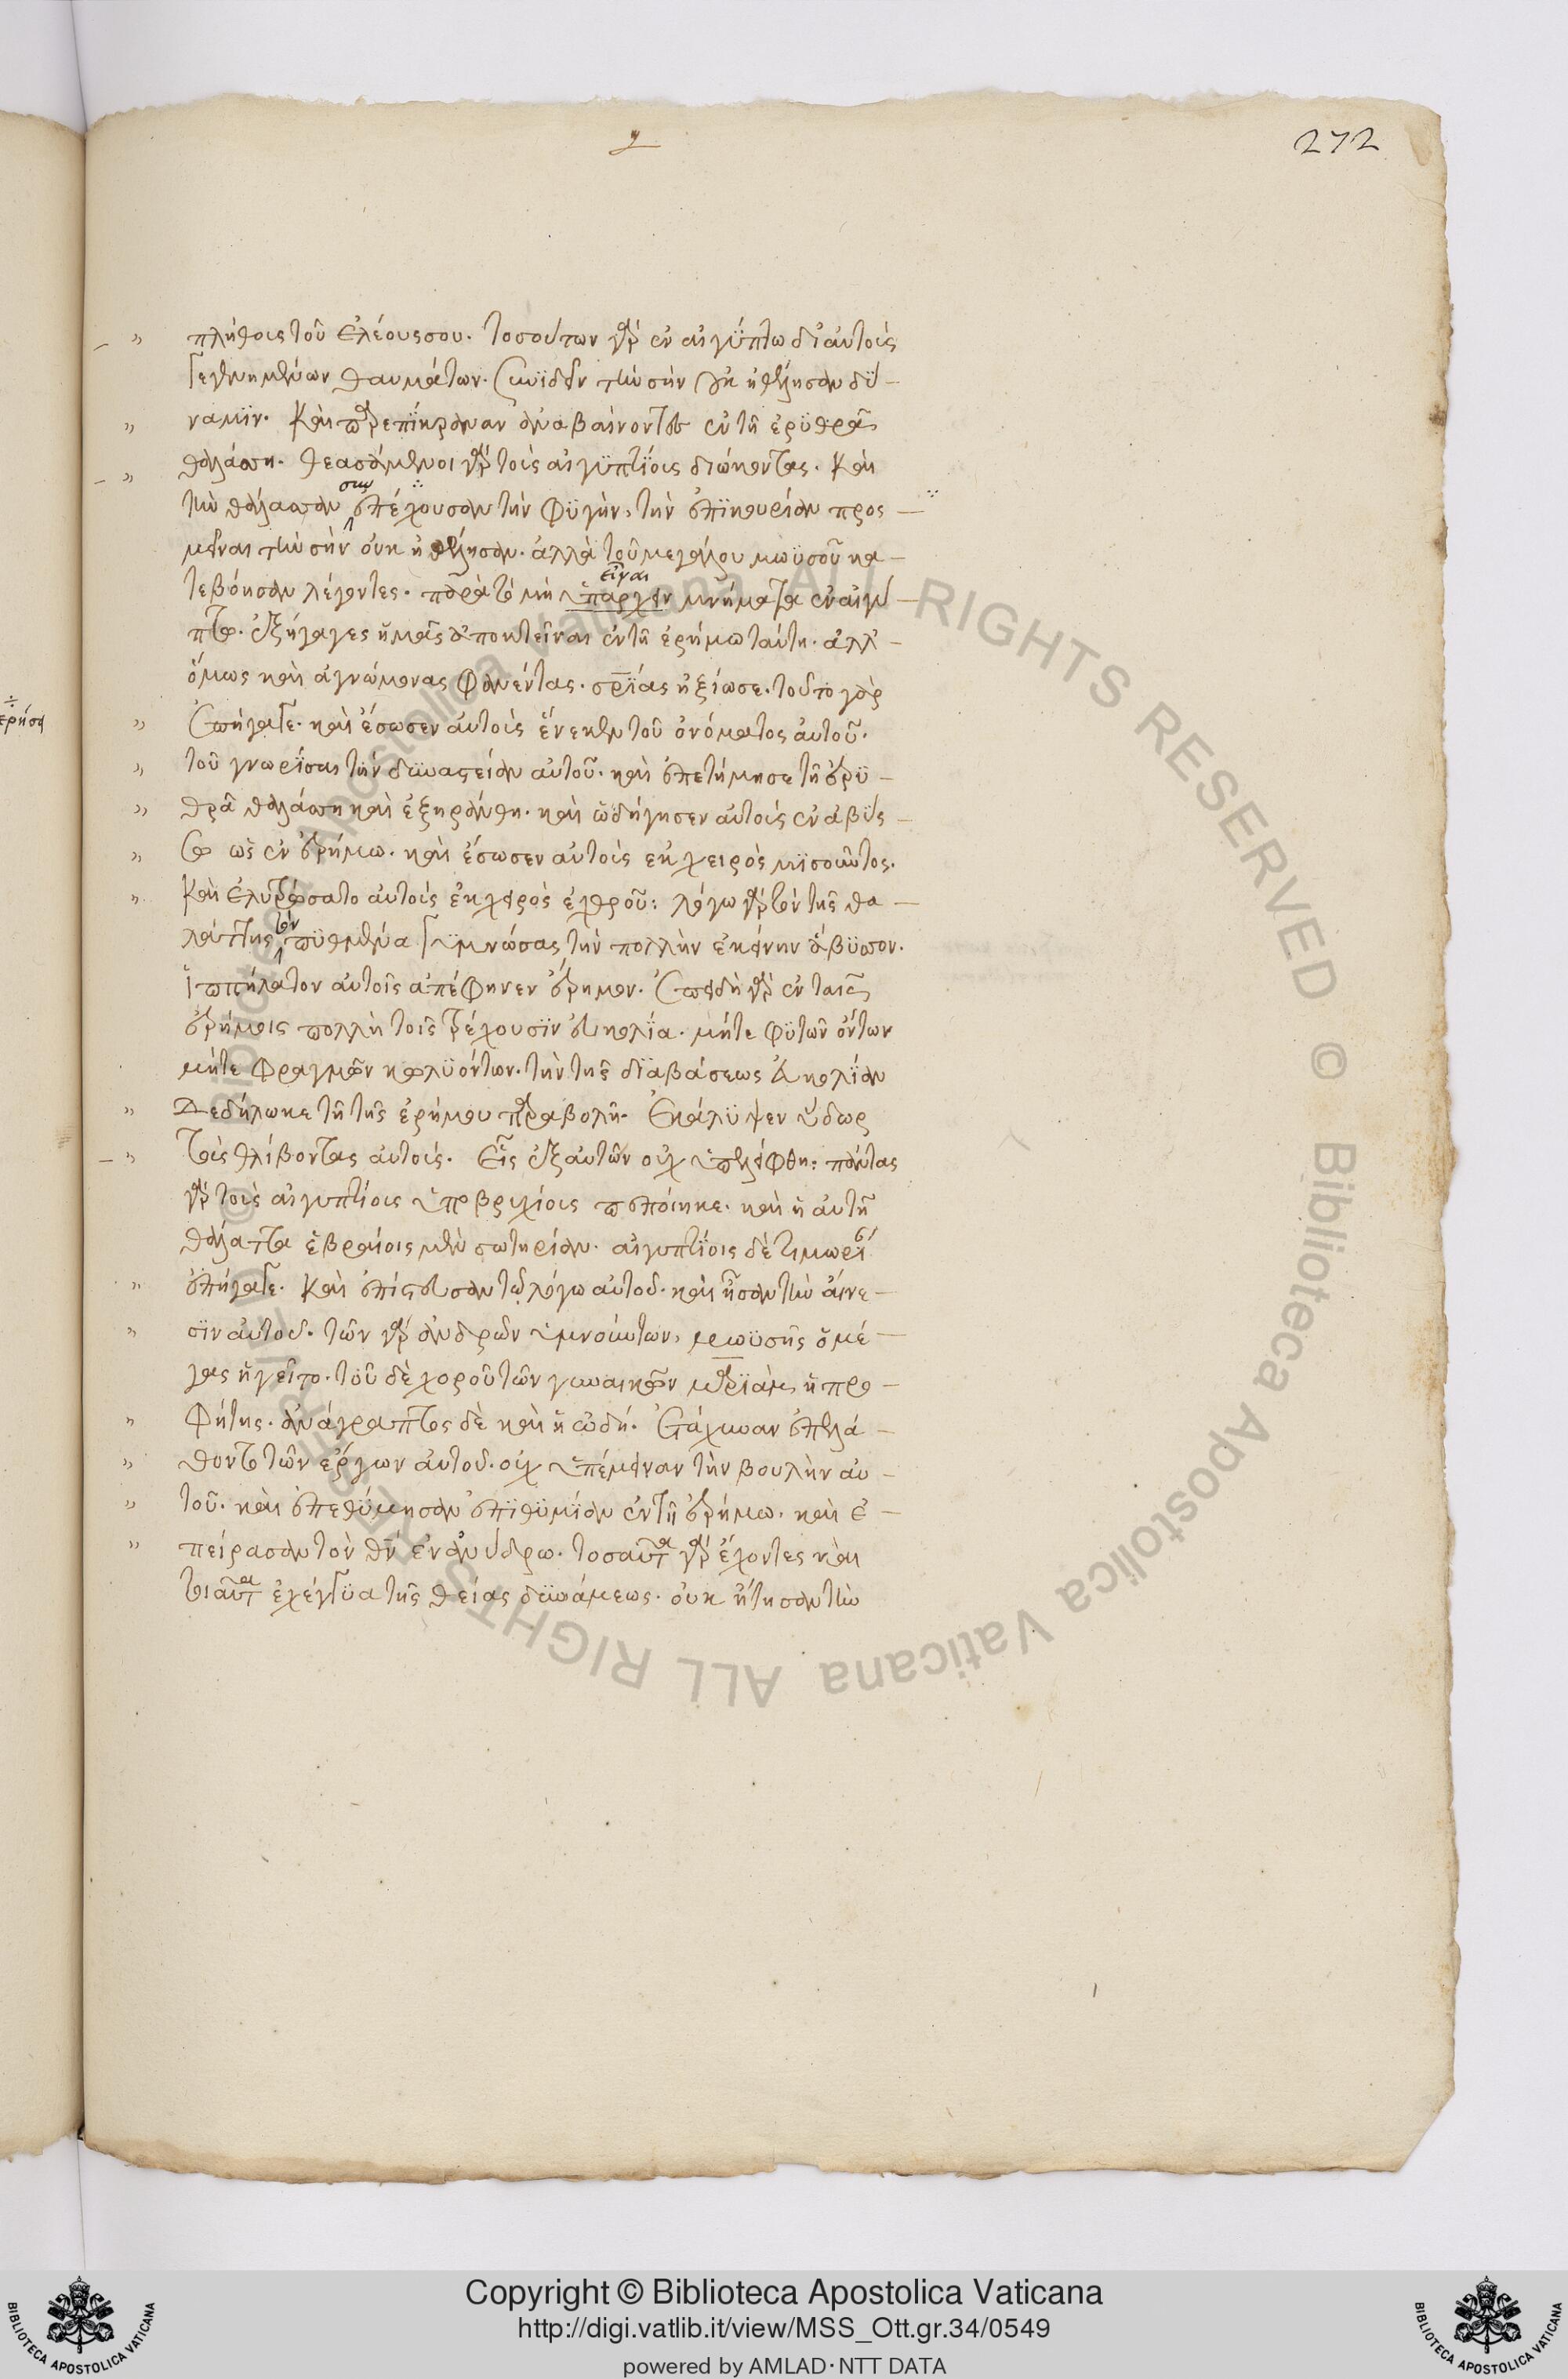 272
πλήθους τοῦ ἐλέους σου. τοσούτων γὰρ ἐν αἰγύπτω δι᾽ αὐτοὺς
γεγενημένων θαυμάτων. συνϊδεῖν τὴν σὴν οὐκ ἠθέλησαν δύ-
ναμϊν. Καὶ παρεπϊκραναν ἀναβαίνοντες ἐν τῆ ἐρϋθρᾶ
θαλάσση. θεασάμενοι γὰρ τοὺς αἰγϋπτίους διώκοντας. Καὶ
τὴν θάλασσαν ἐπέχουσαν τὴν φϋγὴν, τὴν ἐπϊκουρίαν προς-
σου
μεῖναι τὴν σὴν οὐκ ἠθέλησαν. ἀλλὰ τοῦ μεγάλου μωϋσοῦ κα-
τεβόησαν λέγοντες. παρὰ τὸ μὴ ὑπάρχειν μνήματα ἐν αἰγύ-
εἶναι
πτω. ἐξήγαγες ἡμᾶς ἀποκτεῖναι ἐν τῆ ἐρήμω ταύτη. ἀλλ᾽
ὅμως καὶ ἀγνώμονας φανέντας. σρϊας ἠξίωσε. τοῦτο γὰρ
ἐπήγαγε. καὶ ἔσωσεν αὐτοὺς ἕνεκεν τοῦ ὀνόματος αὐτοῦ.
τοῦ γνωρίσαι τὴν δϋναστείαν αὐτοῦ. καὶ ἐπετίμησε τῆ ἐρϋ-
θρᾶ θαλάσση καὶ ἐξηράνθη. καὶ ὡδήγησεν αὐτοὺς ἐν ἀβύσ-
σω ὡς ἐν ἐρήμω. καὶ ἔσωσεν αὐτοὺς ἐκ χειρὸς μϊσοῦντος.
Καὶ ἐλυτρώσατο αὐτοὺς ἐκ χειρὸς ἐχθροῦ: λόγω γὰρ τὸν τῆς θα-
λάττης πϋθμένα γϋμνώσας τὴν πολλὴν ἐκείνην ἄβϋσσον.
τὸν
ἱππήλατον αὐτοῖς ἀπέφηνεν ἔρημον. Ἐπειδὴ γὰρ ἐν ταῖς
ἐρήμοις πολλὴ τοῖς τρέχουσϊν εὐκολϊα. μήτε φϋτῶν ὄντων
μήτε φραγμῶν κωλϋόντων. τὴν τῆς δϊαβάσεως εὐκολϊαν
Δεδήλωκε τῆ τῆς ἐρήμου παραβολῆ. Ἐκάλϋψεν ὕδωρ
τοὺς θλίβοντας αὐτούς. Εἷς ἐξ αὐτῶν οὐχ ὑπελείφθη: πάντας
γὰρ τοὺς αἰγυπτίους ὑποβρυχίους πεποίηκε. καὶ ἡ αὐτὴ
θάλαττα ἑβραίοις μὲν σωτηρίαν. αἰγυπτίοις δὲ τιμωρί
ἐπήγαγε. Καὶ ἐπίστευσαν τῶ λόγω αὐτοῦ. καὶ ἦσαν τὴν αἴνε-
σϊν αὐτοῦ. τῶν γὰρ ἀνδρῶν ὑμνούντων, μωϋσῆς ὁ μέ-
γας ἡγεῖτο. τοῦ δὲ χοροῦ τῶν γυναικῶν μαρϊὰμ ἡ προ-
φήτις. ἀνάγραπτος δὲ καὶ ἡ ὠδή. Ἐτάχυναν ἐπελά-
θοντο τῶν ἔργων αὐτοῦ. οὐχ ὑπέμειναν τὴν βουλὴν αὐ-
τοῦ. καὶ ἐπεθύμησαν ἐπϊθϋμίαν ἐν τῆ ἐρήμω. καὶ ἐ-
πείρασαν τὸν θν ἐν ἀνύδρω. τοσαῦτα γὰρ ἔχοντες καὶ
τοιαῦτα ἐχέγγϋα τῆς θείας δϋνάμεως. οὐκ ἤτησαν τὴν
Copyright © Biblioteca Apostolica Vaticana
http://digi.vatlib.it/view/MSS_Ott.gr.34/0549
powered by AMLAD·NTT DATA
BIBLIOTECA APOSTOLICA VATICANA
BIBLIOTECA APOSTOLICA VATICANA
© Biblioteca Apostolica Vaticana ALL RIGHTS RESERVED
© Biblioteca Apostolica Vaticana ALL RIGHTS RESERVED